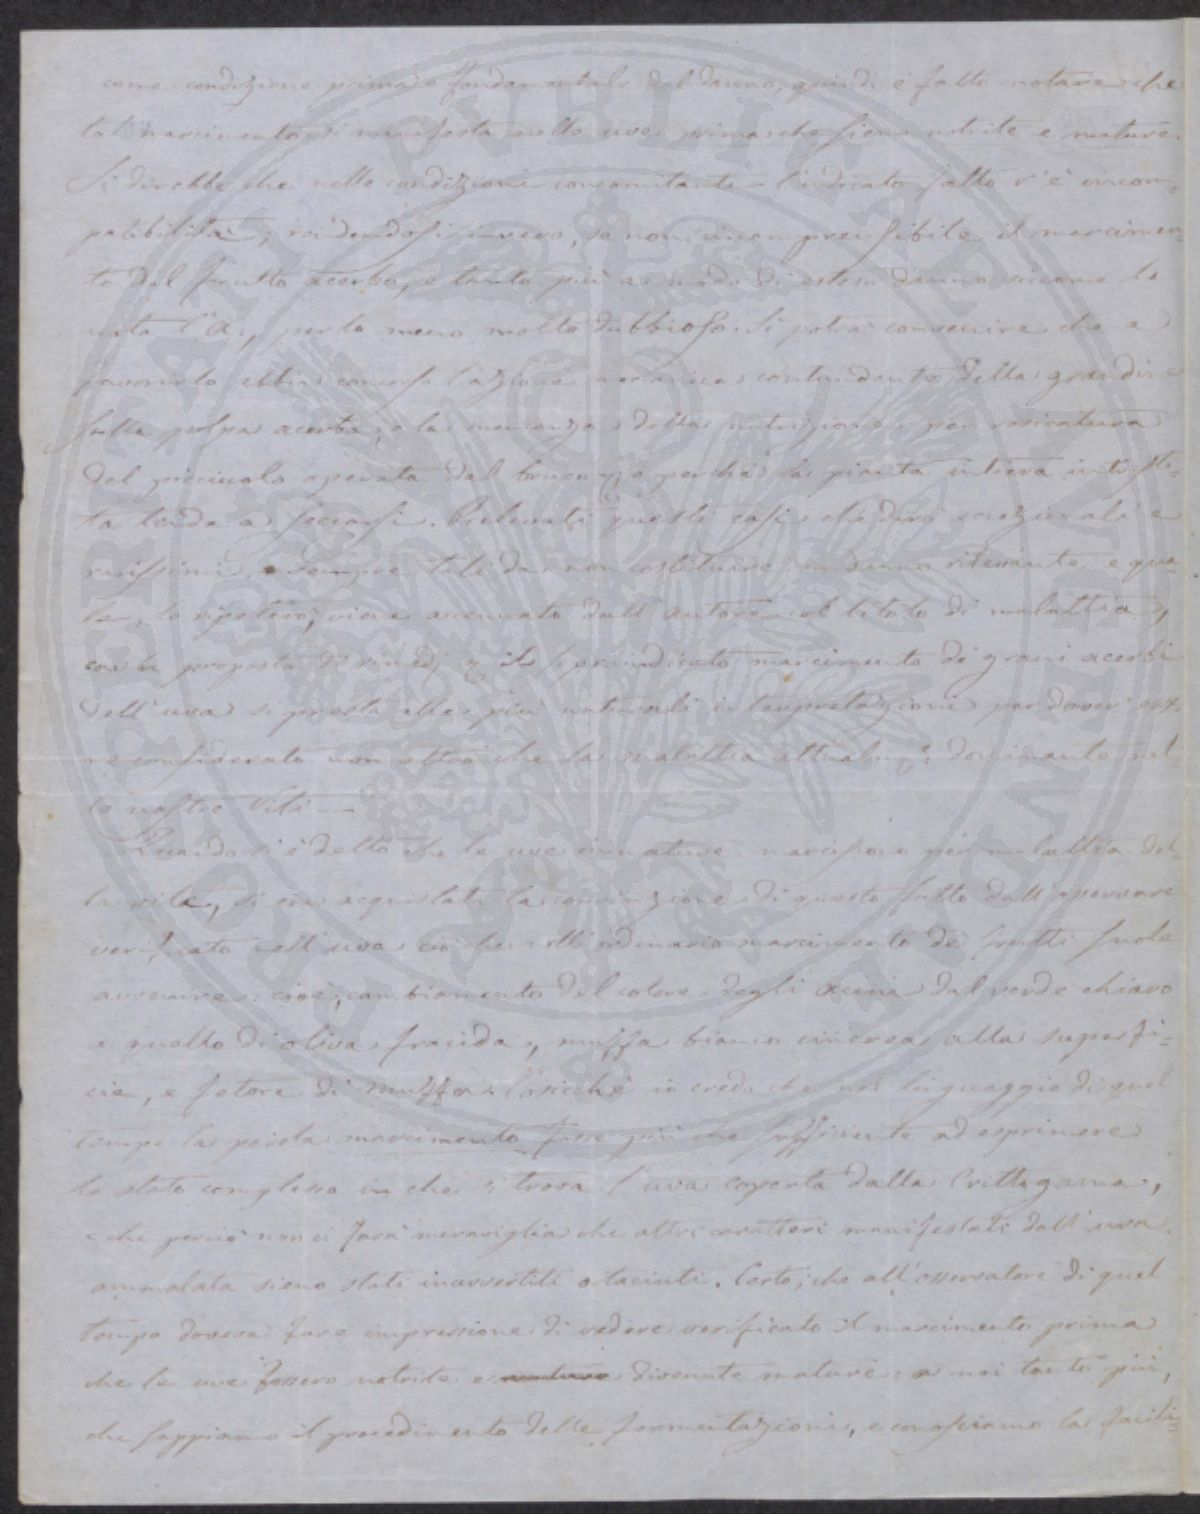 come condizione prima e fondamentale del danno, quindi è fatto notare che
tal marcimento si manifesta nelle uve prima che sieno nutrite e mature.
Si direbbe che nelle condizioni concomitanti l'indicato fatto v'è incom=
patibilità, rendendosi invero, se non incomprensibile il marcimen=
to del frutto acerbo, e tanto più a modo di esteso danno siccome lo
nota l'A:, per lo meno molto dubbioso. Si potrà convenire che a
favorirlo abbia concorso l'azione meccanica contundente della grandine
sulla polpa acerba, o la mancanza della nutrizione per rosicatura
del picciuolo operata dal bruco, o perchè la pianta intiera intristi=
ta tende a seccarsi. Prelevati questi casi che dirò eccezionali e
rarissimi, e sempre tali da non costituire un danno rilevante e qua=
le, lo ripeterò, viene accennato dall'autore col titolo di malattia,
con la proposta di rimedj, il sopraindicato marcimento di grani acerbi
dell'uva si presta alle più naturali interpretazioni per dover esse=
re considerato non altro che la malattia attualm.e dominante nel=
le nostre Viti —
Quando si è detto che le uve immature marciscono per malattia del=
la vite, si era acquistata la convinzione di questo fatto dall'osservare
verificato nell'uva ciò che nell'ordinario marcimento de' frutti suole
avvenire: cioè, cambiamento del colore degli acini dal verde chiaro
a quello di oliva fracida, muffa bianco cinerea alla superfi=
cie, e fetore di muffa. Cosicchè io credo che nel linguaggio di quel
tempo la parola marcimento fosse più che sufficiente ad esprimere
lo stato complesso in che si trova l'uva coperta dalla Crittogama,
e che perciò non ci farà meraviglia che altri caratteri manifestati dall'uva
ammalata sieno stati inavvertiti o taciuti. Certo, che all'osservatore di quel
tempo doveva fare impressione di vedere verificato il marcimento prima
che le uve fossero nutrite e mature divenute mature: a noi tanto più,
che sappiamo il procedimento delle fermentazioni, e conosciamo la facili=